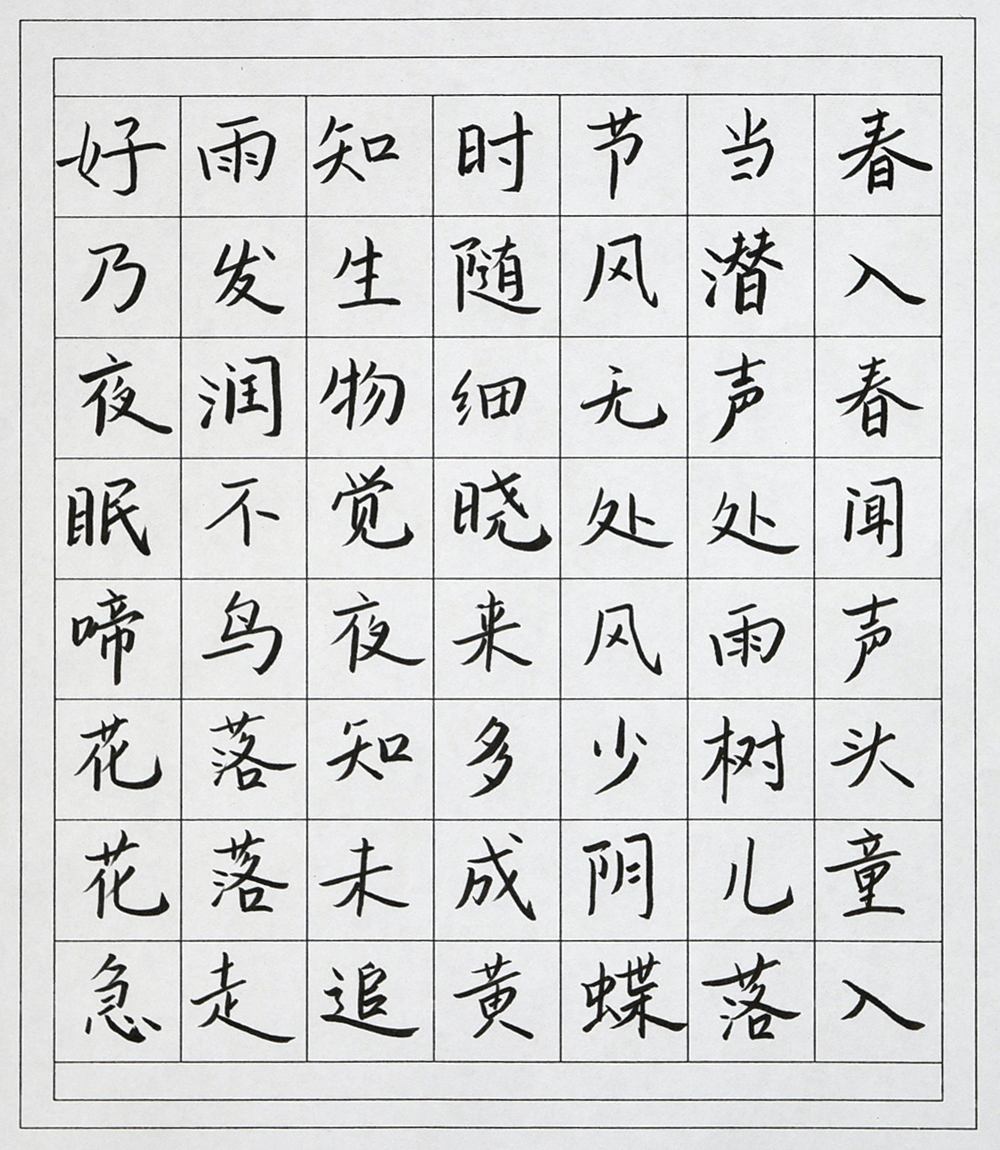 好雨知时节当春
乃发生随风潜入
夜润物细无声春
眠不觉晓处处闻
啼鸟夜来风雨声
花落知多少树头
花落未成阴儿童
急走追黄蝶落入